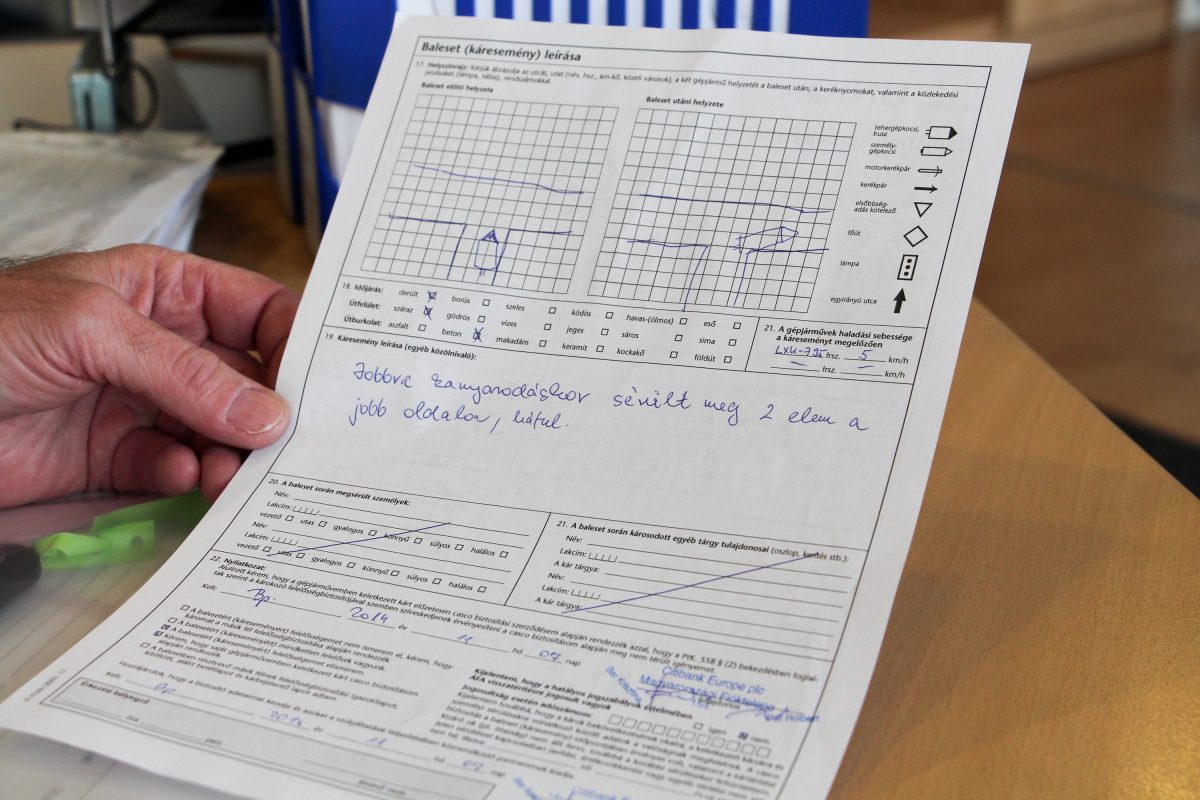 Baleset (káresemény) leírása
17. Helyszínrajz: Kérjük ábrázolja az utcát, utat (név, hsz., km-kő, közeli városok), a két gépjármű helyzetét a baleset után, a keréknyomokat, valamint a közlekedési
jelzéseket (lámpa, tábla), rendszámokkal.
Baleset előtti helyzete
Baleset utáni helyzete
tehergépkocsi,
busz
személy-
gépkocsi
motorkerékpár
kerékpár
elsőbbség-
adás kötelező
főút
lámpa
egyirányú utca
18. Időjárás: derült borús szeles ködös havas-(ólmos) eső
Útfelület: száraz gödrös vizes jeges sáros sima
Útburkolat: aszfalt beton makadám keramit kockakő földút
21. A gépjárművek haladási sebessége
a káreseményt megelőzően
frsz. 5 km/h
frsz. km/h
19. Káresemény leírása (egyéb közölnivaló):
Jobbra kanyarodáskor sérült meg 2 elem a
jobb oldalon, hátul.
20. A baleset során megsérült személyek:
Név:
Lakcím:
vezető utas gyalogos könnyű súlyos halálos
Név:
Lakcím:
vezető utas gyalogos könnyű súlyos halálos
21. A baleset során károsodott egyéb tárgy tulajdonosai (oszlop, kerítés stb.):
Név:
Lakcím:
A kár tárgya:
Név:
Lakcím:
A kár tárgya:
22. Nyilatkozat:
Alulírott kérem, hogy a gépjárművemben keletkezett kárt előzetesen casco biztosítási szerződésem alapján rendezzék azzal, hogy a Ptk. 558 § (2) bekezdésben foglal-
tak szerint a károkozó felelősségbiztosítójával szemben szíveskedjenek érvényesíteni a casco biztosításom alapján meg nem térült igényemet.
Kelt: Bp. 2014 év 11 hó 07 nap
A balesetért (káreseményért) felelősségemet nem ismerem el, kérem, hogy
káromat a másik fél felelősségbiztosítása alapján rendezzék
A balesetért (káreseményért) mindketten felelősek vagyunk.
A balesetért (káreseményért) felelősségemet elismerem.
Kérem, hogy saját gépjárművemben keletkezett kárt casco biztosításom
alapján rendezzék
Kijelentem, hogy a hatályos jogszabályok értelmében
ÁFA visszatérítésre jogosult vagyok
igen nem
Jogosultság esetén adószámom:
Citibank Europe plc
Magyarországi Fióktelepe
Kelt: Bp 2014 év 11 hó 07 nap
Érkezési bélyegző